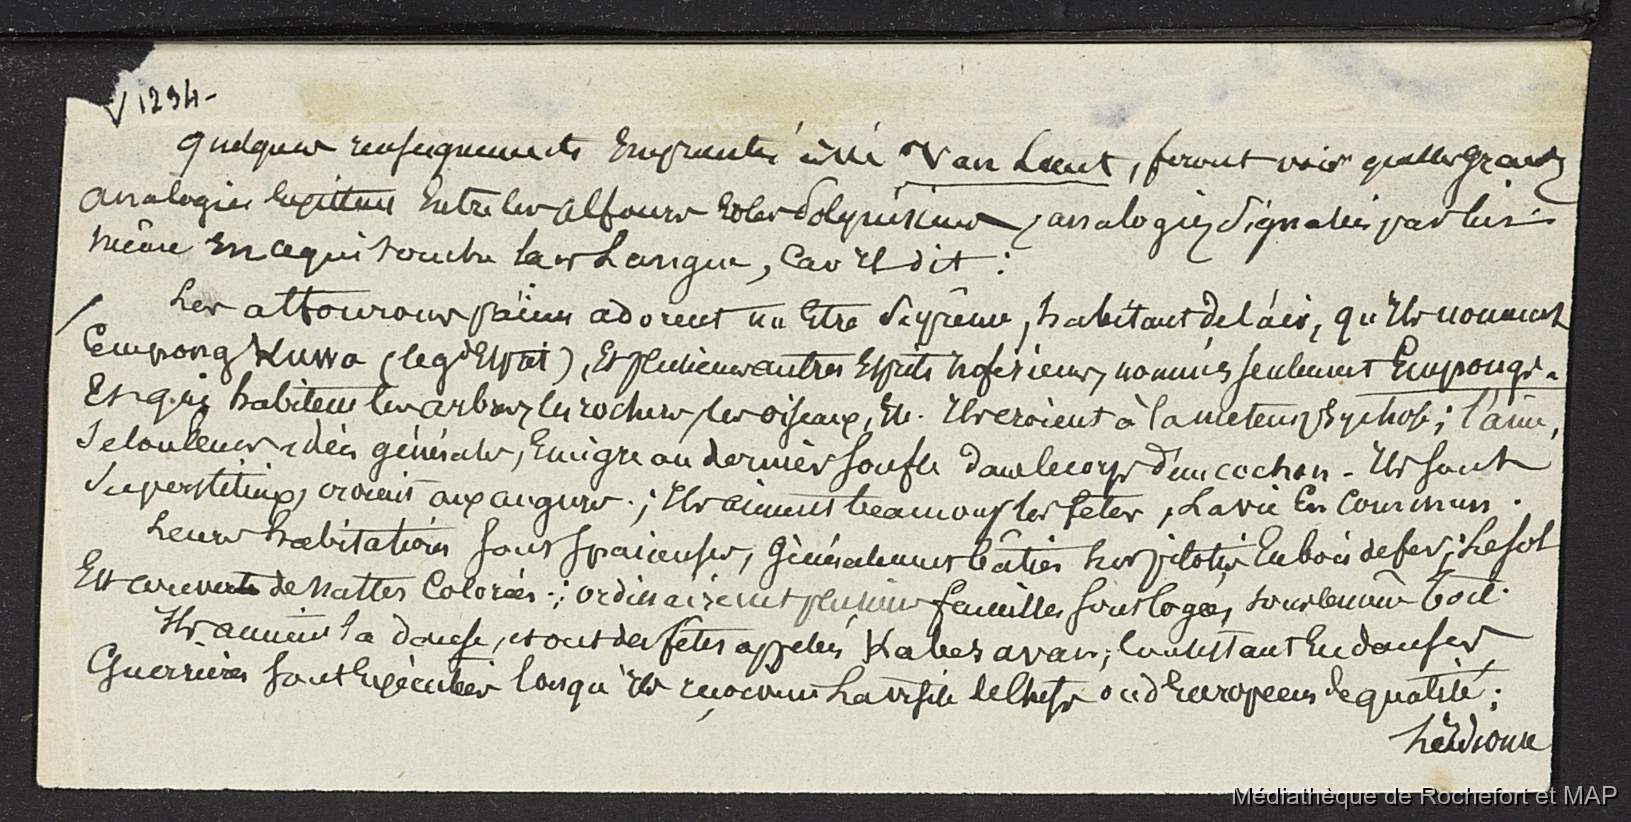 √ 1294-
Quelques renseignements Empruntés à Mr Van Leent, feront voir quelles grandes
analogies Existent Entre les alfours Et les Polynésiens, analogies signalées par lui-
même En ce qui touche la Langue, Car Il dit :
Les alfourous païens adorent un Etre Suprême, habitant de l'air, qu'Ils nomment
Empong Kuwo (le gd Esprit), Et plusieurs autres Esprits Inférieurs, nommés seulement Empongs.
Et qui habitent les arbres, les rochers, les oiseaux, Etc. Ils croient à la metempsychose ; l'âme,
Selon leurs idées générales, Emigre au dernier soufle dans le corps d'un cochon. Ils sont
Superstitieux, croient aux augures ; Ils aiment beaucoup les fêtes, La vie En Commun.
Leurs habitations sont spacieuses, Généralement bâties sur pilotis En bois de fer ; Le sol
Est couvert de nattes Colorées ; ordinairement plusieurs familles sont logées, sous le même toit.
Ils aiment la danse, et ont des fêtes appelées Kabesaran, Consistant En danses
Guerrières sont Exécutées lorsqu'Ils reçoivent La visite de Chefs ou d'Européens de qualité ;